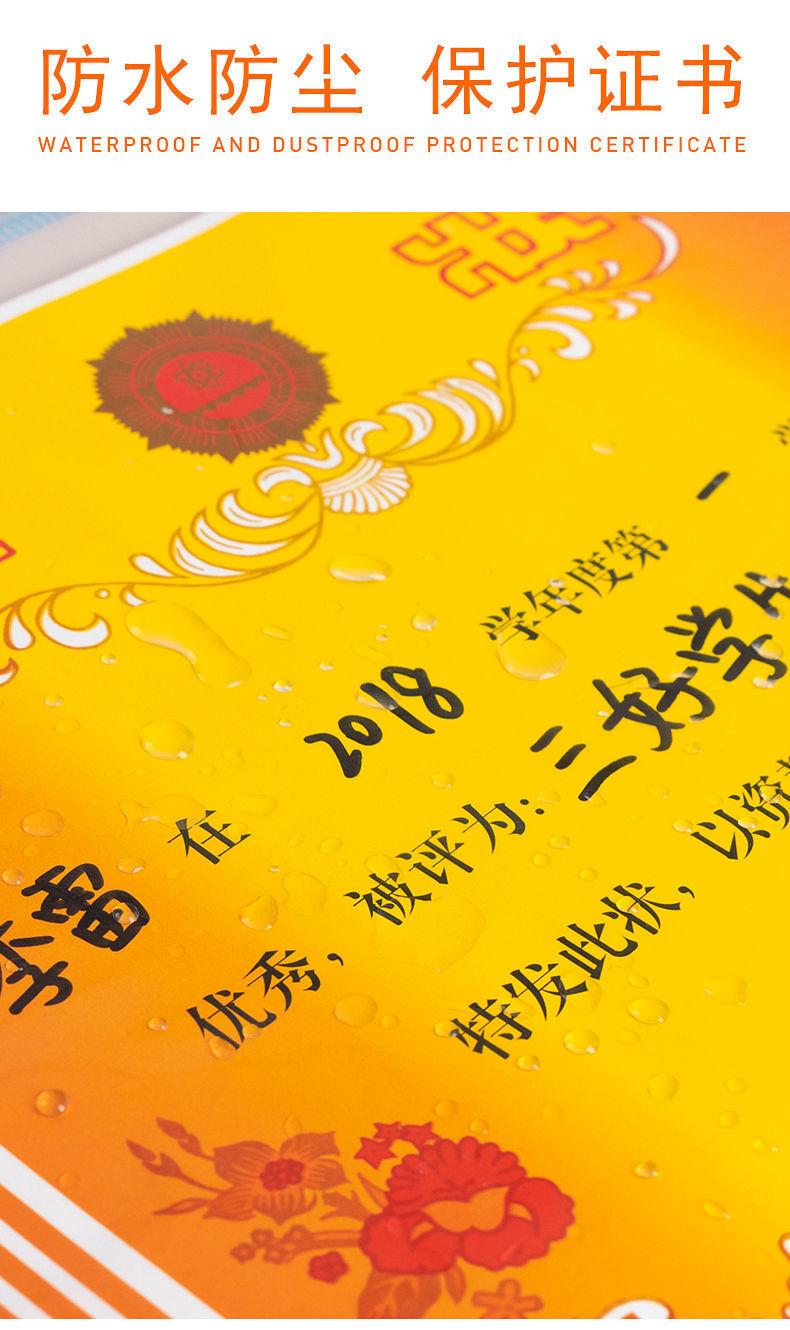 防水防尘 保护证书
WATERPROOF AND DUSTPROOF PROTECTION CERTIFICATE
李雷 在 2018 学年度第 一
优秀，被评为：三好学生
特发此状，以资